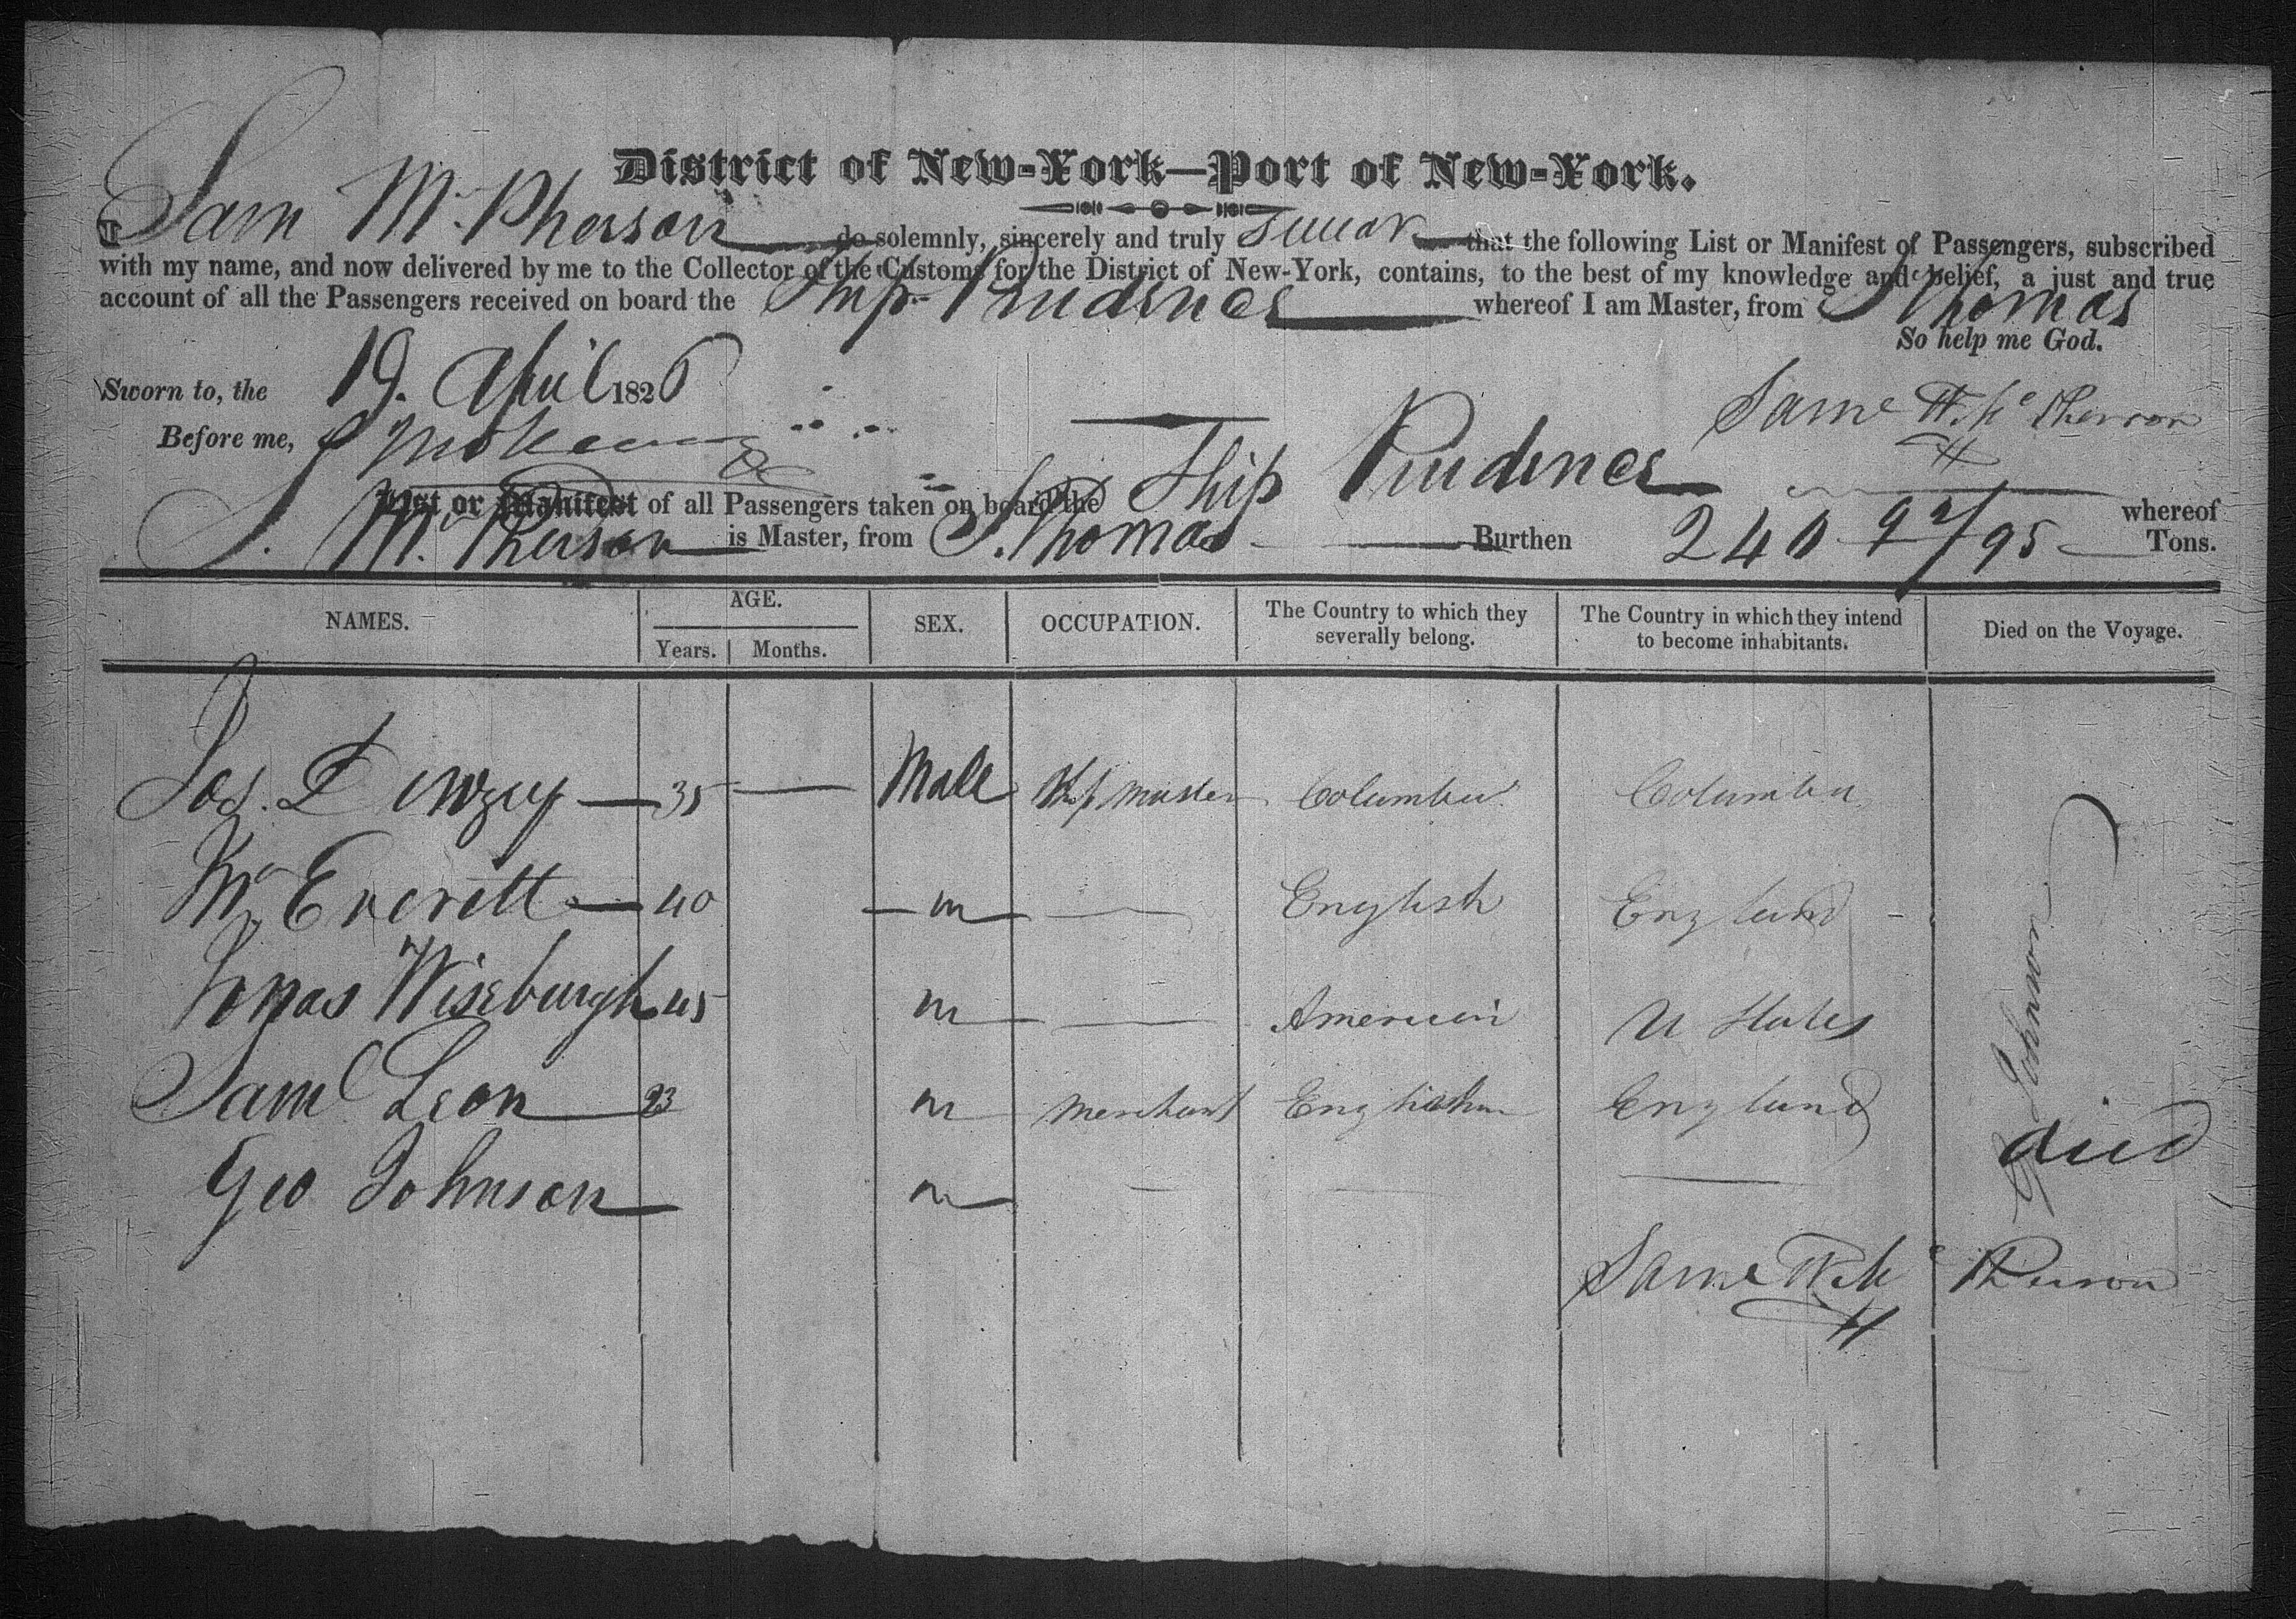 District of New-York—Port of New-York.
I Sam McPherson do solemnly, sincerely and truly swear that the following List or Manifest of Passengers, subscribed
with my name, and now delivered by me to the Collector of the Customs for the District of New-York, contains, to the best of my knowledge and belief, a just and true
account of all the Passengers received on board the Ship Prudence whereof I am Master, from St Thomas
So help me God.
Sworn to, the 19. April 1826
Before me,
Saml McPherson
List or Manifest of all Passengers taken on board the Ship Prudence whereof
S. McPherson is Master, from S. Thomas Burthen 240 92/95 Tons.
NAMES. AGE. Years. Months. SEX. OCCUPATION. The Country to which they severally belong. The Country in which they intend to become inhabitants. Died on the Voyage.
Jos. 35 — Male master Columbia Columbia
Mr Everett — 40 — m — English England
Wiseburgh 45 m — American U States
Saml Leon 23 m merchant England
Geo Johnson m — — — died
G Johnson
Saml McPherson